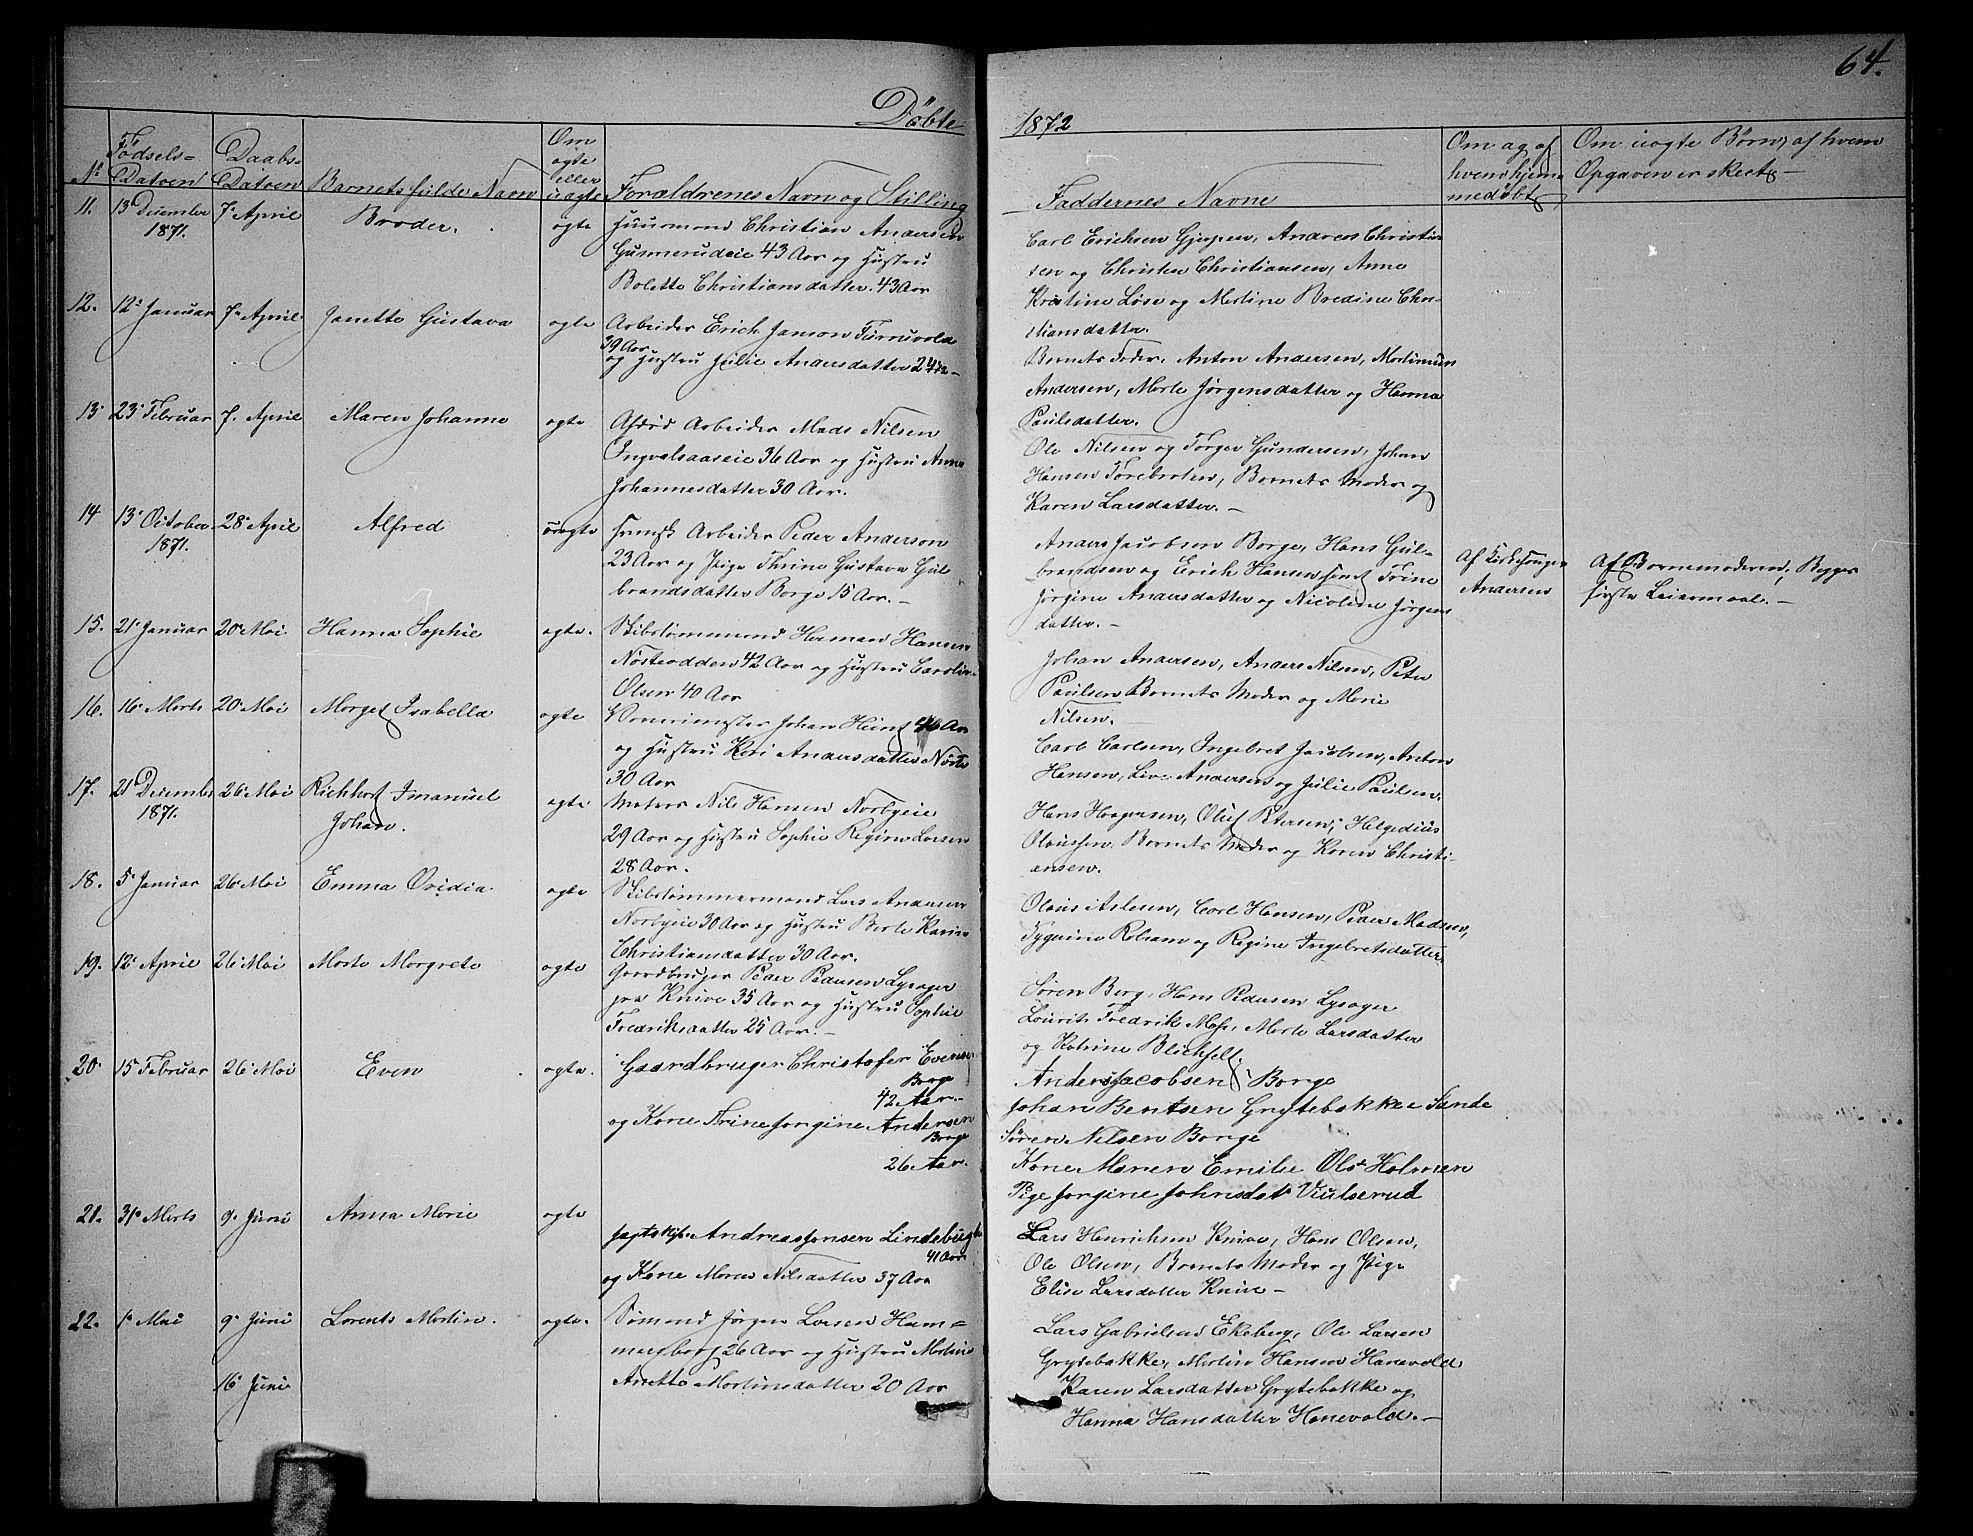 64.
Döbte 1872
No
Födsels-
Datoen
Daabs-
Datoen
Barnets fulde Navn
Om
ægte
eller
uægte
Forældrenes Navn og Stilling
Faddernes Navne
Om og af
hvem hjem-
medöbt
Om uægte Børn, af hvem
Opgaven er skeet.-
11. 13 December 7. April Broder. ægte Huusmand Christian Andersen
1871.
Gunnerudeie 43 Aar og Hustru
Bolette Christiansdatter 43 Aar
Carl Erichsen Gjerpen, Andreas Christian-
sen og Christen Christiansen, Anne
Kristine Löse og Martine Bredine Chri-
stiansdatter.
12. 12 Januar 7 April Janette Gustava ægte Arbeider Erich Janson
39 Aar
og Hustru Julie Andersdatter
Barnets Fader, Anton Andersen,
Andersen, Marte Jörgensdatter og Hanna
Paulsdatter.
13 23 Februar 7. April Maren Johanne ægte Afdöd Arbeider Mads Nilsen
Ingvalsaaseie 36 Aar og Hustru Anne
Johannesdatter 30 Aar.
Ole Nilsen og Torger Gundersen, Johan
Hansen Torebraten, Barnets Moder og
Karen Larsdatter. -
14 13 October 28 April Alfred uægte svensk Arbeider Peder Anderson
1871.
23 Aar og Pige Thrine Gustava Gul-
brandsdatter Borge 15 Aar. -
Anders Jacobsen Borge, Hans Gul-
brandsen og Erich Hansen samt Trine
Jörgine Andersdatter og Nicoline Jörgens
datter. -
Af Kirkesanger
Andersen
Af Barnemoderen, Begges
første Leiermaal. -
15. 21 Januar 20 Mai Hanna Sophie ægte. Skibstömmermand Herman Hansen
Nösteodden 42 Aar og Hustru Caroline
Olsen 40 Aar
Johan Andersen, Anders Nilsen, Peter
Paulsen Barnets Moder og Marie
Nilsen.
16. 16 Marts 20 Mai Marget Isabella ægte Johan 46 Aar
og Hustru Kari Andersdatter Nöste
30 Aar
Carl Carlsen, Ingebret Jacobsen, Anton
Hansen, Live Andersen og Julie Paulsen.
17. 21 December 26 Mai Richhart Imanuel ægte Matros Nils Hansen Norbyeie
1871. Johan.
29 Aar og Hustru Sophie Regine Larsen
28 Aar.
Hans Haagensen, Oluf Petersen, Helgedius
Olaussen, Barnets Moder og Karen Christi-
ansen.
18. 5 Januar 26 Mai Emma Ovidia. ægte Skibstömmermand Lars Andersen
Norbyeie 30 Aar og Hustru Berte Karine
Christiansdatter 30 Aar.
Olaus Aslesen, Carl Hansen, Peder Madsen,
og Regine Ingebretsdatter.
19. 12 April 26 Mai Marte Margrete ægte Gaardbruger Peder Pedersen Lysager
pra Knive 35 Aar og Hustru Sophie
Fredriksdatter 25 Aar. -
Sören Berg, Hans Pedersen Lysager
Lourits Fredrik Moss, Marte Larsdatter
og Katrine Blichfelt.
20. 15 Februar 26 Mai Even ægte. Gaardbruger Christofer Evensen
Borge
42 Aar. -
og Kone Trine Jorgine Andersen
Borge
26 Aar.
Anders Jacobsen Borge
Johan Bentsen Grytebakke i Sande
Sören Nilsen Borge
Kone Maren Emilie Ols Holmen
Pige Jorgine Johnsdat Viulserud
21. 31 Marts 9. Juni Anna Marie ægte Jagtskip. Andreas Jensen Lindebugt
41 Aar
og Kone Maren Nilsdatter 37 Aar
Lars Henrichsen Knive, Hans Olsen,
Ole Olsen, Barnets Moder og Pige
Elise Larsdatter Knive -
22. 1 Mai 9. Juni Lorents Martin. ægte. Sömand Jörgen Larsen Ham-
16 Juni
mersborg 26 Aar og Hustru Martine
Anette Martinsdatter 20 Aar
Lars Gabrielsen Ekeberg, Ole Larsen
Grytebakke, Martin Hansen Hanevold
Karen Larsdatter Grytebakke og
Hanna Hansdatter Hanevold. -